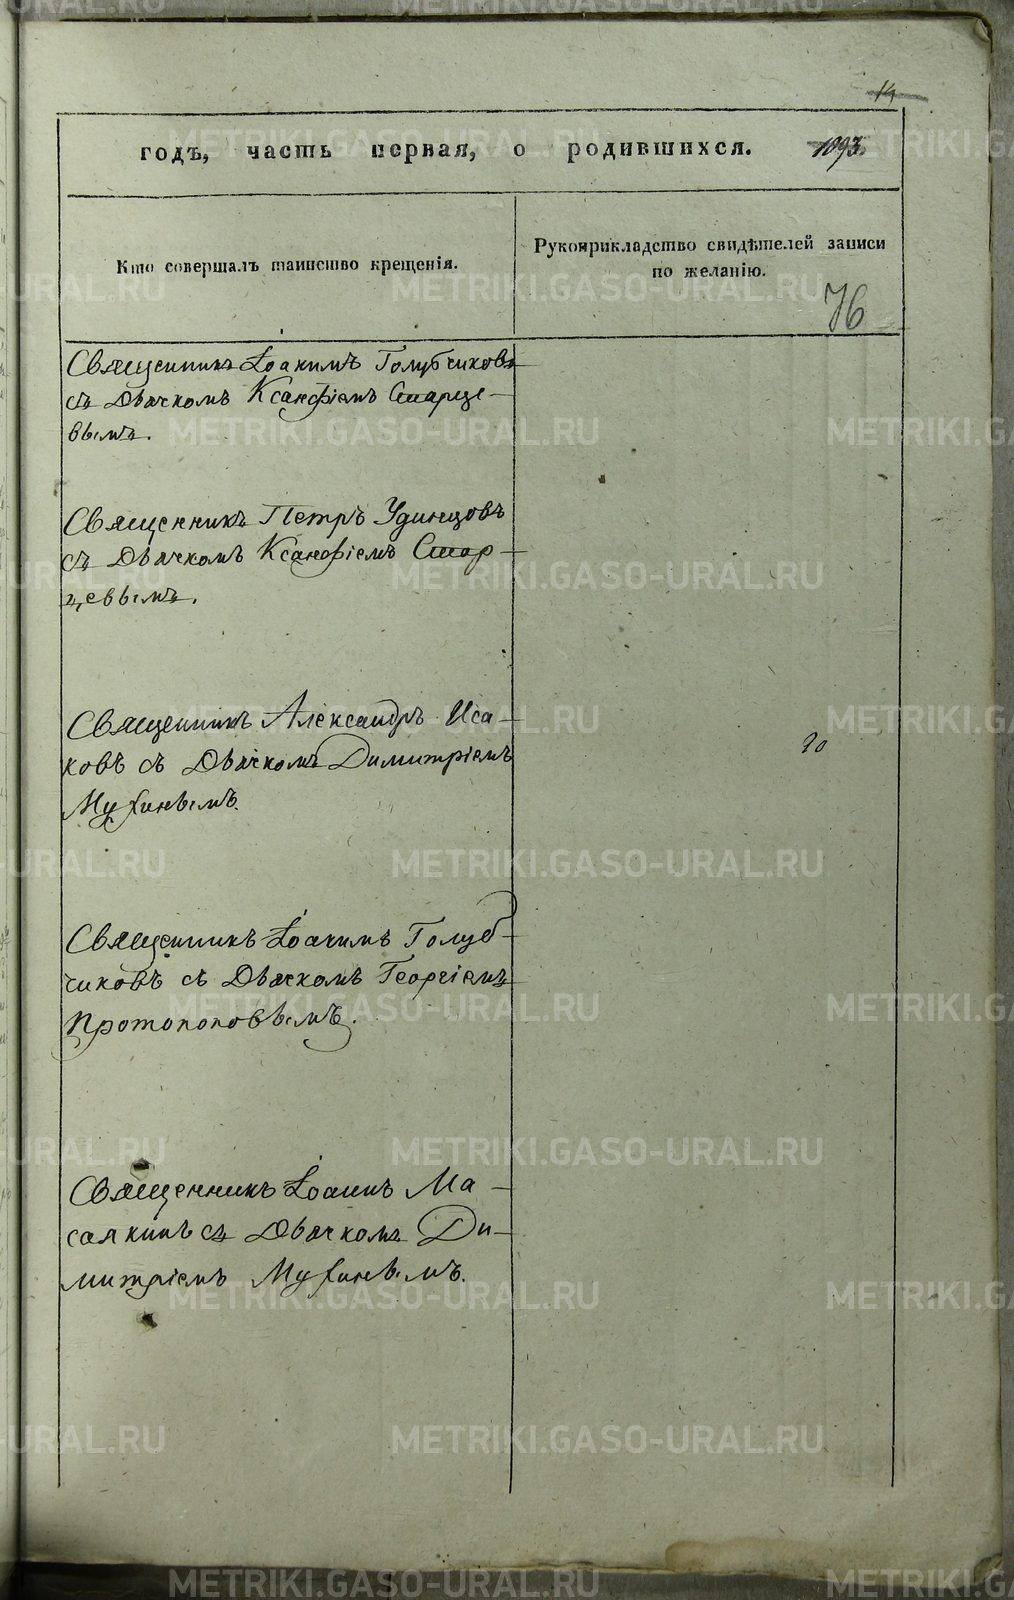 14
годъ, часть первая, о родившихся. 1093.
Кто совершалъ таинство крещенія.
Рукоприкладство свидѣтелей записи
по желанію.
76
Священникъ Іоакимъ Голубчиковъ
съ Дьячкомъ Ксанфіемъ Старце-
вымъ.
Священникъ Петръ Удинцовъ
съ Дьячкомъ Ксанфіемъ Стар-
цевымъ.
Священникъ Александръ Иса-
ковъ съ Дьячкомъ Димитріемъ
Мухинымъ.
20
Священникъ Іоакимъ Голуб-
чиковъ съ Дьячкомъ Георгіемъ
Протопоповымъ.
Священникъ Іоаннъ Ма-
салкинъ съ Дьячкомъ Ди-
митріемъ Мухинымъ.
METRIKI.GASO-URAL.RU